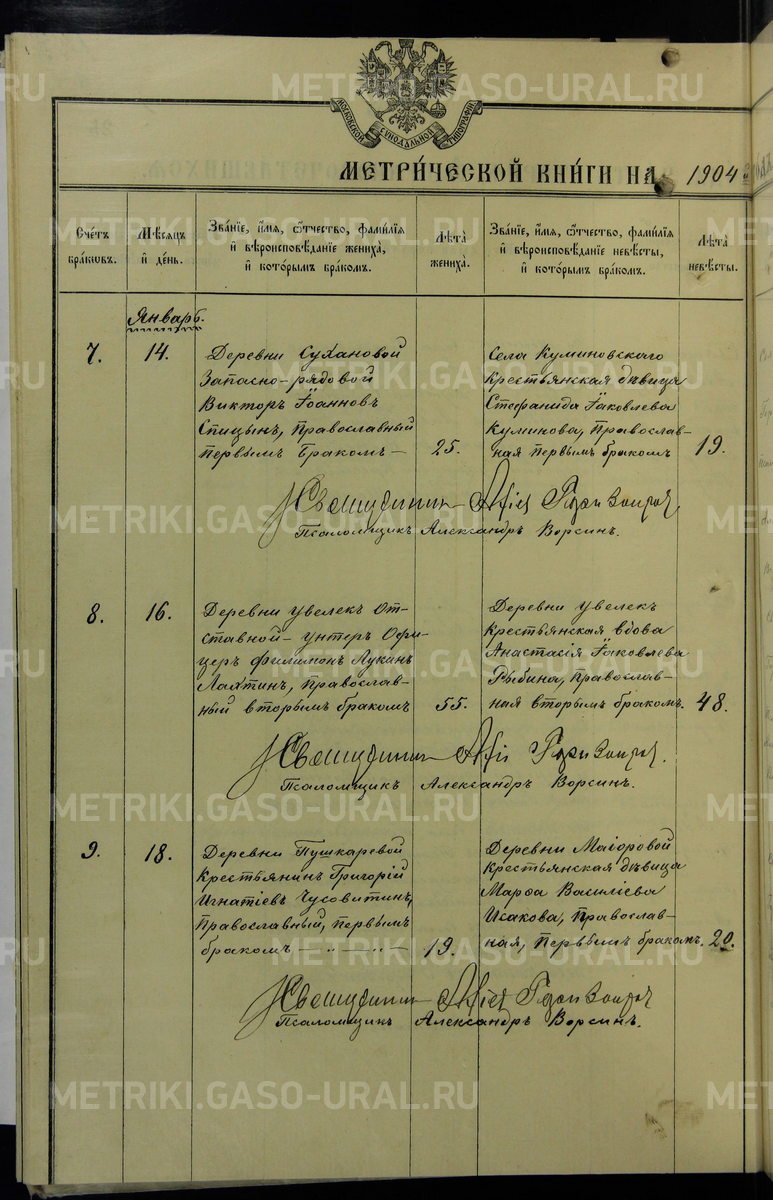 МОСКОВСКОЙ СѴНОДАЛЬНОЙ ТИПОГРАФІИ
МЕТРИ́ЧЕСКОЙ КНИ́ГИ НА 1904
Сче́тъ бра́ковъ.
Мѣ́сяцъ и҆ де́нь.
Зва́нїе, и҆́мя, ѻ҆́тчество, фами́лїя и҆ вѣроисповѣ́данїе жениха̀, и҆ кото́рымъ бра́комъ.
Лѣ́та жениха̀.
Зва́нїе, и҆́мя, ѻ҆́тчество, фами́лїя и҆ вѣроисповѣ́данїе невѣ́сты, и҆ кото́рымъ бра́комъ.
Лѣ́та невѣ́сты.
Январь.
7.
14.
Деревни Сухановой
Запасно-рядовой
Викторъ Іоанновъ
Спицынъ, Православный
первымъ бракомъ —
25.
Села Куминовскаго
крестьянская дѣвица
Стефанида Іаковлева
Куминова, Православ-
ная первымъ бракомъ
19.
Священникъ
Псаломщикъ Александръ Ворсинъ.
8.
16.
Деревни Увелекъ От-
ставной – унтеръ Офи-
церъ Филимонъ Лукинъ
Лахтинъ, православ-
ный вторымъ бракомъ
55.
Деревни Увелекъ
крестьянская вдова
Анастасія Іаковлева
Рыбина, православ-
ная вторымъ бракомъ.
48.
Священникъ
Псаломщикъ Александръ Ворсинъ.
9.
18.
Деревни Пушкаревой
крестьянинъ Григорій
Игнатіевъ Чусовитинъ,
православный, первымъ
бракомъ — „ — „ —
19.
Деревни Маіоровой
крестьянская дѣвица
Марѳа Василіева
Исакова, православ-
ная, первымъ бракомъ.
20.
Священникъ
Псаломщикъ Александръ Ворсинъ.
METRIKI.GASO-URAL.RU